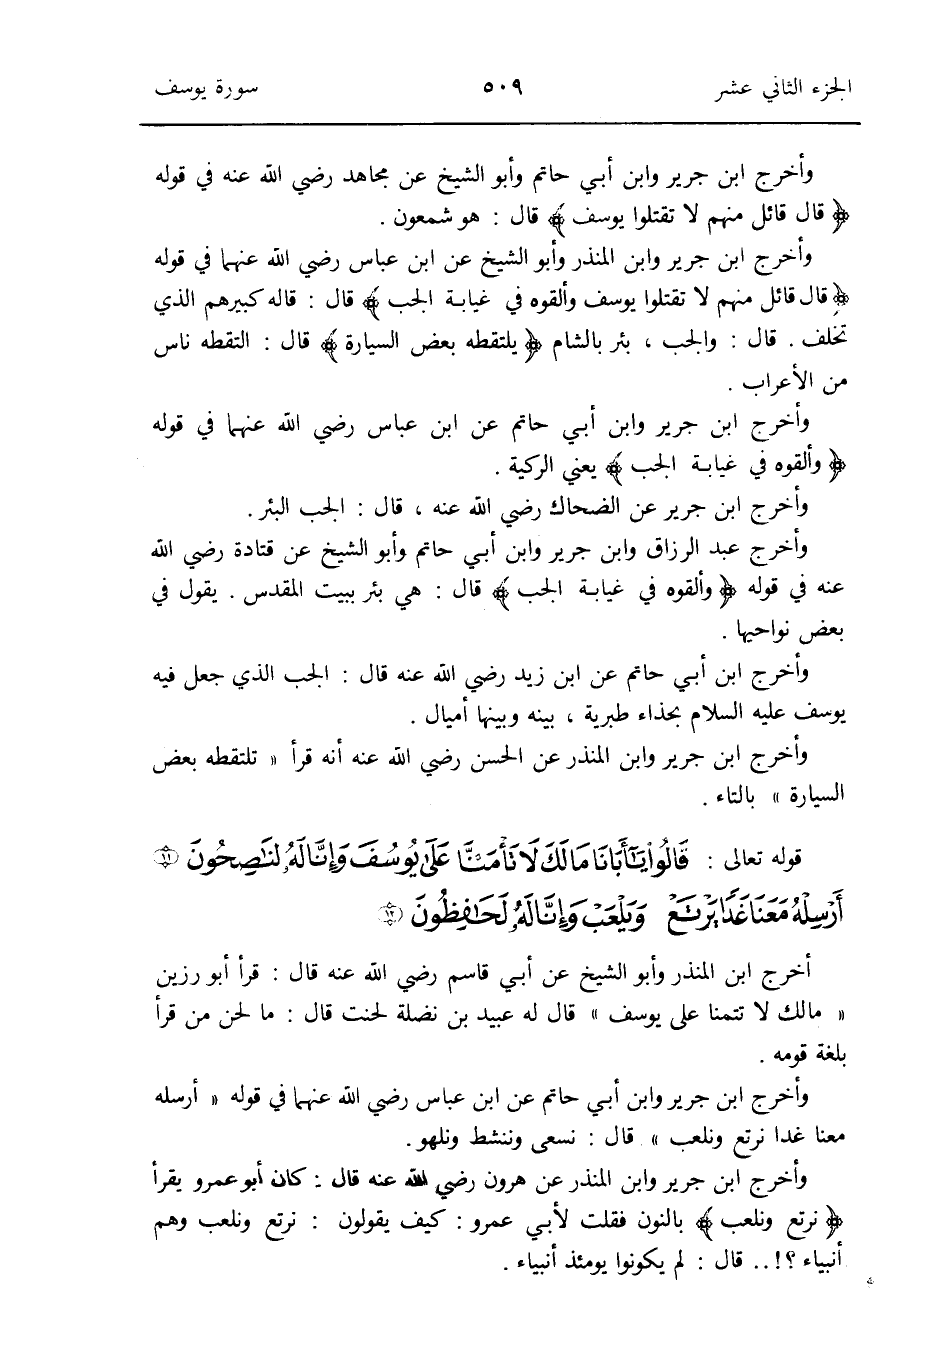 الجزء الثاني عشر ٥٠٩ سورة يوسف
وأخرج ابن جرير وابن أبي حاتم وأبو الشيخ عن مجاهد رضي الله عنه في قوله
﴿ قال قائل منهم لا تقتلوا يوسف ﴾ قال : هو شمعون .
وأخرج ابن جرير وابن المنذر وأبو الشيخ عن ابن عباس رضي الله عنهما في قوله
﴿ قال قائل منهم لا تقتلوا يوسف وألقوه في غيابة الجب ﴾ قال : قاله كبيرهم الذي
تخلف . قال : والجب ، بئر بالشام ﴿ يلتقطه بعض السيارة ﴾ قال : التقطه ناس
من الأعراب .
وأخرج ابن جرير وابن أبي حاتم عن ابن عباس رضي الله عنهما في قوله
﴿ وألقوه في غيابة الجب ﴾ يعني الركية .
وأخرج ابن جرير عن الضحاك رضي الله عنه ، قال : الجب البئر .
وأخرج عبد الرزاق وابن جرير وابن أبي حاتم وأبو الشيخ عن قتادة رضي الله
عنه في قوله ﴿ وألقوه في غيابة الجب ﴾ قال : هي بئر ببيت المقدس . يقول في
بعض نواحيها .
وأخرج ابن أبي حاتم عن ابن زيد رضي الله عنه قال : الجب الذي جعل فيه
يوسف عليه السلام بحذاء طبرية ، بينه وبينها أميال .
وأخرج ابن جرير وابن المنذر عن الحسن رضي الله عنه أنه قرأ « تلتقطه بعض
السيارة » بالتاء .
قوله تعالى : قَالُوا۟ يَٰٓأَبَانَا مَالَكَ لَا تَأۡمَ۬نَّا عَلَىٰ يُوسُفَ وَإِنَّا لَهُۥ لَنَٰصِحُونَ ۝١١
أَرۡسِلۡهُ مَعَنَا غَدٗا يَرۡتَعۡ وَيَلۡعَبۡ وَإِنَّا لَهُۥ لَحَٰفِظُونَ ۝١٢
أخرج ابن المنذر وأبو الشيخ عن أبي قاسم رضي الله عنه قال : قرأ أبو رزين
« مالك لا تتمنا على يوسف » قال له عبيد بن نضلة لحنت قال : ما لحن من قرأ
بلغة قومه .
وأخرج ابن جرير وابن أبي حاتم عن ابن عباس رضي الله عنهما في قوله « أرسله
معنا غدا نرتع ونلعب » قال : نسعى وننشط ونلهو .
وأخرج ابن جرير وابن المنذر عن هرون رضي الله عنه قال : كان أبو عمرو يقرأ
﴿ نرتع ونلعب ﴾ بالنون فقلت لأبي عمرو : كيف يقولون : نرتع ونلعب وهم
أنبياء ؟!.. قال : لم يكونوا يومئذ أنبياء .